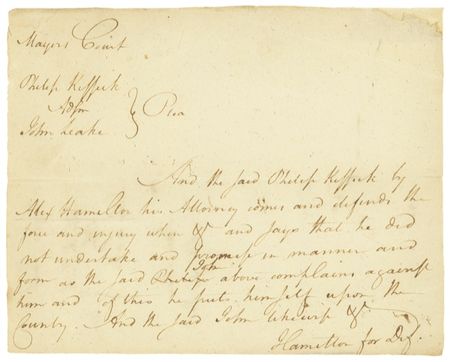 Mayors Court
Philip Kissick
Adsm
John Leake
} Plea
And the said Philip Kissick by
Alex Hamilton his Attorney comes and defends the
force and injury when &c and says that he did
not undertake and promise in manner and
form as the said Philip John above complains against
him and of this he puts himself upon the
Country. And the said John likewise &c
Hamilton for Def.